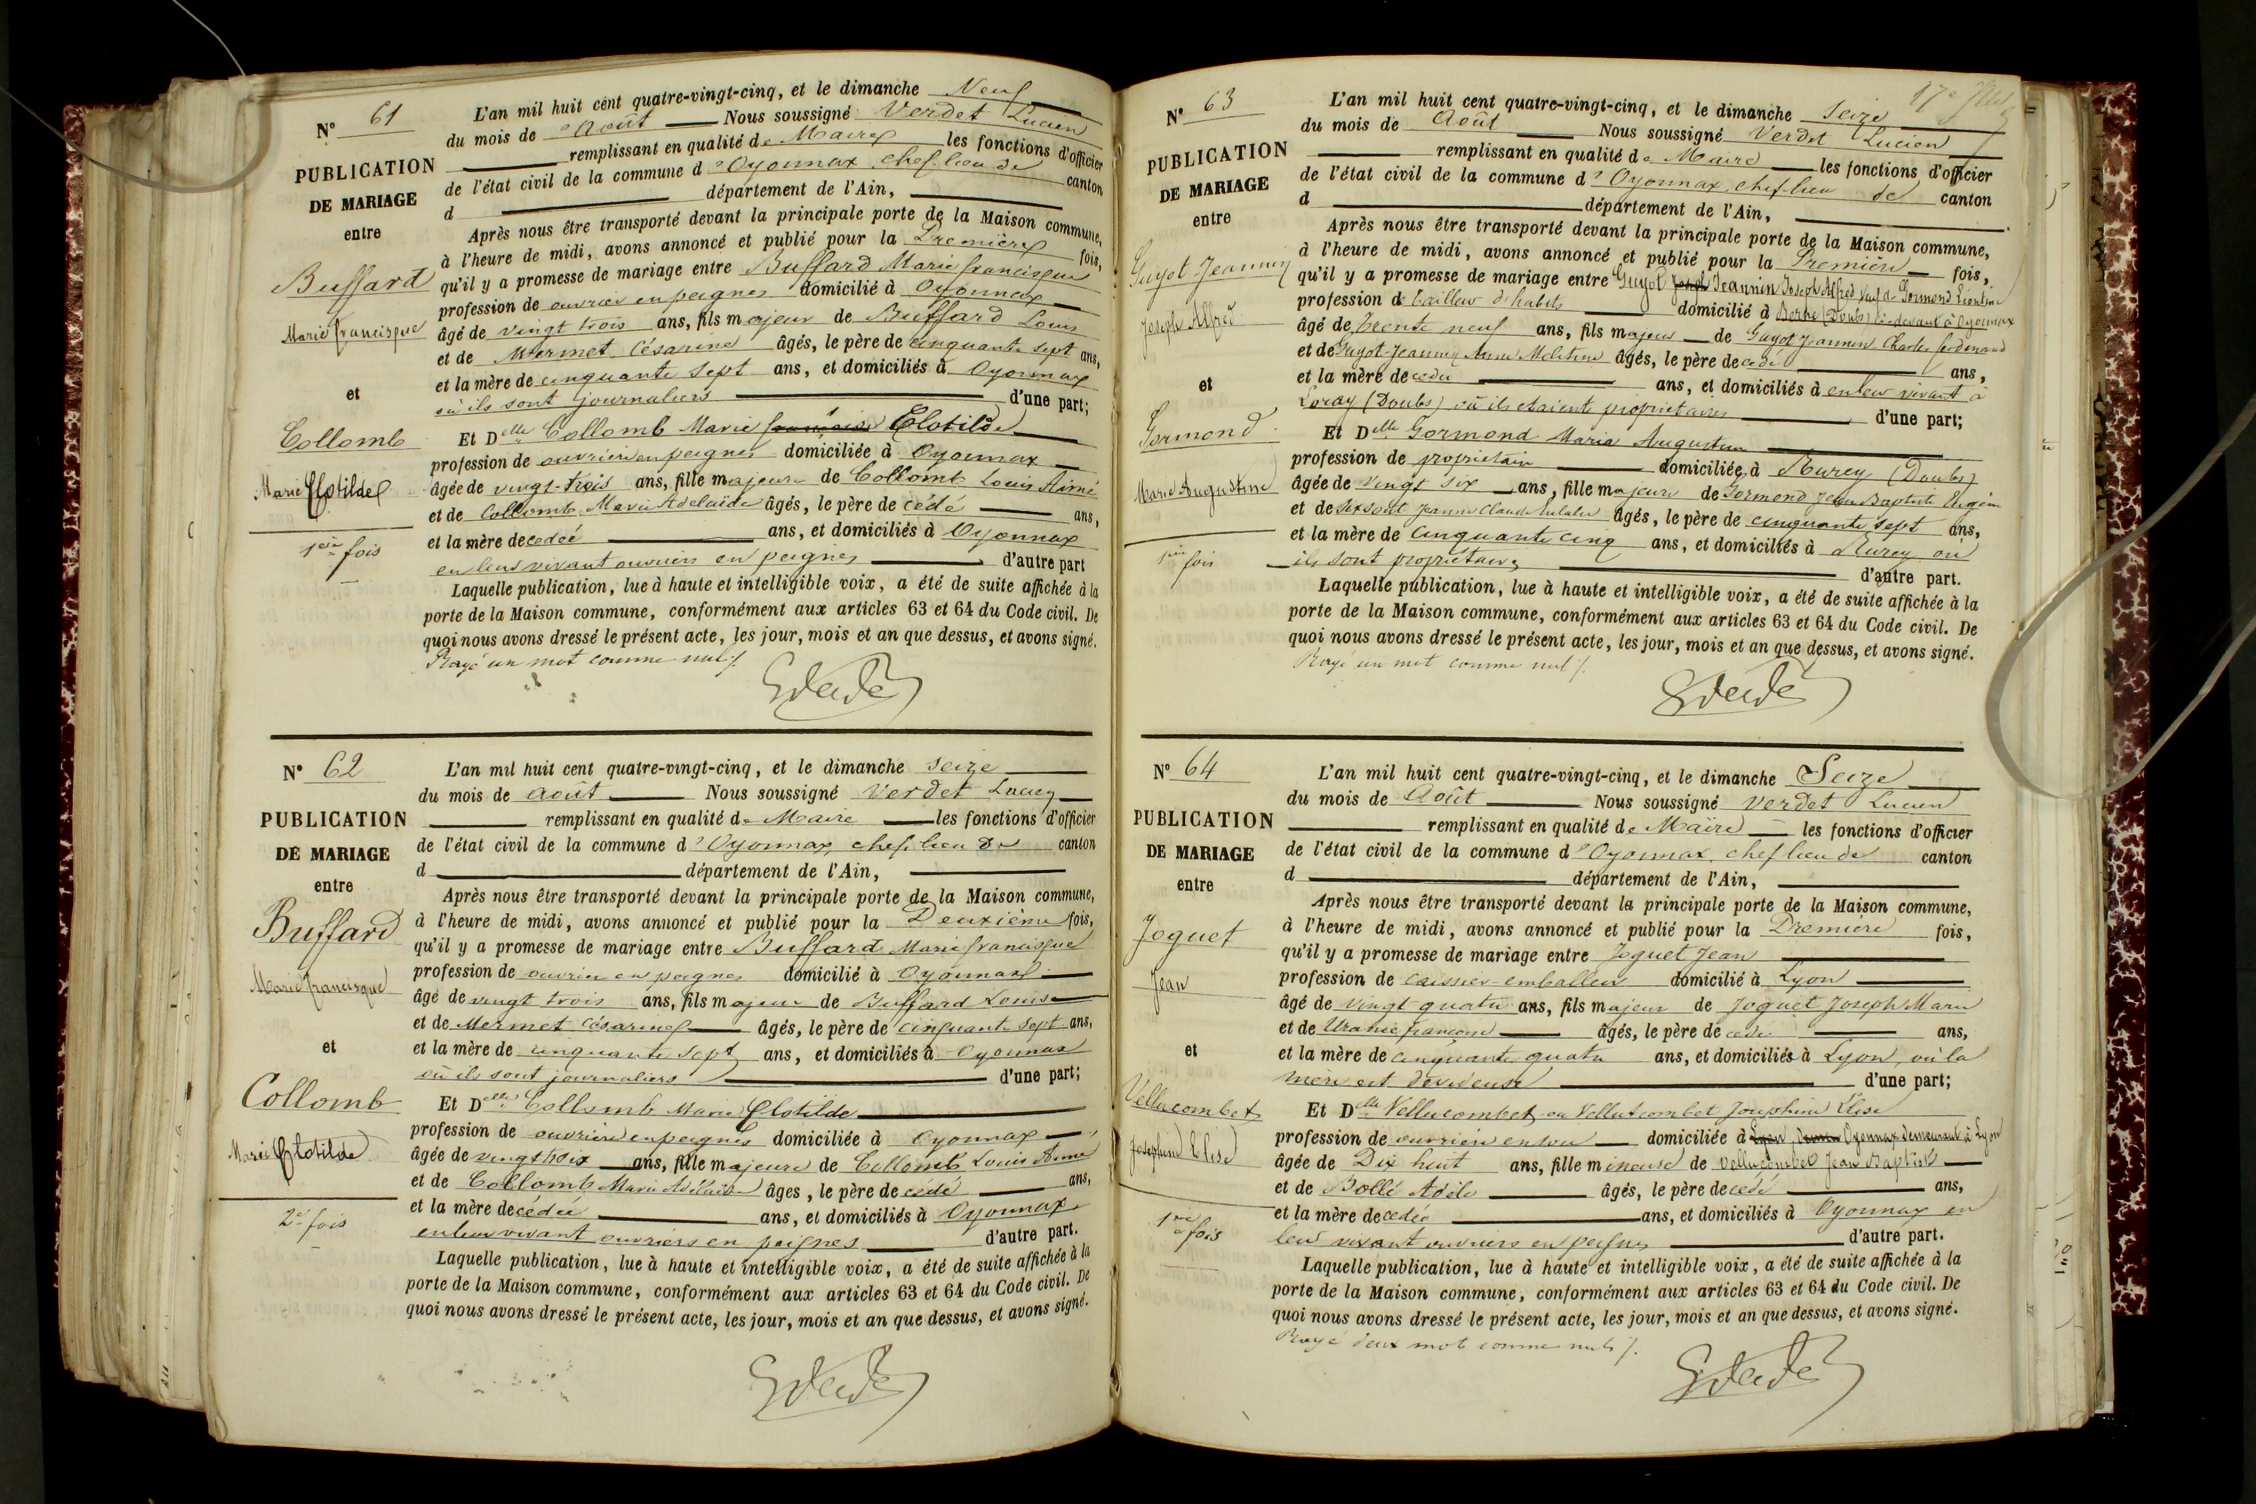 N° 61
PUBLICATION
DE MARIAGE
entre
Buffard
Marie francisque
et
Collomb
Marie Clotilde
1ère fois
L'an mil huit cent quatre-vingt-cinq, et le dimanche Neuf
du mois de Août Nous soussigné Verdet Lucien
remplissant en qualité de Maire les fonctions d'officier
de l'état civil de la commune d'Oyonnax, chef-lieu de canton
d département de l'Ain,
Après nous être transporté devant la principale porte de la Maison commune,
à l'heure de midi, avons annoncé et publié pour la Première fois,
qu'il y a promesse de mariage entre Buffard Marie francisque
profession de ouvrier en peignes domicilié à Oyonnax
âgé de vingt trois ans, fils majeur de Buffard Louis
et de Mermet Césarine âgés, le père de cinquante sept ans,
et la mère de cinquante sept ans, et domiciliés à Oyonnax
où ils sont journaliers d'une part;
Et Delle Collomb Marie Clotilde
profession de ouvrière en peignes domiciliée à Oyonnax
âgée de vingt-trois ans, fille majeure de Collomb Louis Aimé
et de Collomb Marie Adelaïde âgés, le père de cédé ans,
et la mère de cedée ans, et domiciliés à Oyonnax
en leur vivant ouvriers en peignes d'autre part
Laquelle publication, lue à haute et intelligible voix, a été de suite affichée à la
porte de la Maison commune, conformément aux articles 63 et 64 du Code civil. De
quoi nous avons dressé le présent acte, les jour, mois et an que dessus, et avons signé.
Rayé un mot comme nul ./.
N° 62
PUBLICATION
DE MARIAGE
entre
Buffard
Marie francisque
et
Collomb
Marie Clotilde
2e fois
L'an mil huit cent quatre-vingt-cinq, et le dimanche seize
du mois de Août Nous soussigné Verdet
remplissant en qualité de Maire les fonctions d'officier
de l'état civil de la commune d'Oyonnax, chef-lieu de canton
d département de l'Ain,
Après nous être transporté devant la principale porte de la Maison commune,
à l'heure de midi, avons annoncé et publié pour la Deuxième fois,
qu'il y a promesse de mariage entre Buffard Marie francisque
profession de ouvrier en peignes domicilié à Oyonnax
âgé de vingt trois ans, fils majeur de Buffard Louis
et de Mermet Césarine âgés, le père de cinquante sept ans,
et la mère de cinquante sept ans, et domiciliés à Oyonnax
où ils sont journaliers d'une part;
Et Delle Collomb Marie Clotilde
profession de ouvrière en peignes domiciliée à Oyonnax
âgée de vingt trois ans, fille majeure de Collomb Louis Aimé
et de Collomb Marie Adélaïde âges, le père de cédé ans,
et la mère de cédée ans, et domiciliés à Oyonnax
en leur vivant ouvriers en peignes d'autre part.
Laquelle publication, lue à haute et intelligible voix, a été de suite affichée à la
porte de la Maison commune, conformément aux articles 63 et 64 du Code civil. De
quoi nous avons dressé le présent acte, les jour, mois et an que dessus, et avons signé.
17e
N° 63
PUBLICATION
DE MARIAGE
entre
Guyot Jeannin
Joseph Alfred
et
Gormond
Marie Augustine
1ère fois
L'an mil huit cent quatre-vingt-cinq, et le dimanche seize
du mois de Août Nous soussigné Verdet Lucien
remplissant en qualité de Maire les fonctions d'officier
de l'état civil de la commune d'Oyonnax, chef-lieu de canton
d département de l'Ain,
Après nous être transporté devant la principale porte de la Maison commune,
à l'heure de midi, avons annoncé et publié pour la Première fois,
qu'il y a promesse de mariage entre Guyot Jeannin Joseph Alfred veuf de Gormond
profession de tailleur d'habits domicilié à (Doubs) ci-devant à Oyonnax
âgé de trente neuf ans, fils majeur de Guyot Jeannin Charles ferdinand
et de Guyot Jeannin Anne âgés, le père de cedé ans,
et la mère de cedée ans, et domiciliés à en leur vivant à
Loray (Doubs) où ils étaient propriétaires d'une part;
Et Delle Gormond Maria Augustine
profession de propriétaire domiciliée à Rurey (Doubs)
âgée de vingt six ans, fille majeure de Gormond Jean Baptiste
et de Jeanne Claude âgés, le père de cinquante sept ans,
et la mère de cinquante cinq ans, et domiciliés à Rurey où
ils sont propriétaires d'autre part.
Laquelle publication, lue à haute et intelligible voix, a été de suite affichée à la
porte de la Maison commune, conformément aux articles 63 et 64 du Code civil. De
quoi nous avons dressé le présent acte, les jour, mois et an que dessus, et avons signé.
Rayé un mot comme nul ./.
N° 64
PUBLICATION
DE MARIAGE
entre
Joguet
Jean
et
Vellucombet
Josephine Elise
1ère fois
L'an mil huit cent quatre-vingt-cinq, et le dimanche Seize
du mois de Août Nous soussigné Verdet Lucien
remplissant en qualité de Maire les fonctions d'officier
de l'état civil de la commune d'Oyonnax, chef lieu de canton
d département de l'Ain,
Après nous être transporté devant la principale porte de la Maison commune,
à l'heure de midi, avons annoncé et publié pour la Première fois,
qu'il y a promesse de mariage entre Joguet Jean
profession de caissier-emballeur domicilié à Lyon
âgé de vingt quatre ans, fils majeur de Joguet Joseph Marie
et de Uranie françoise âgés, le père de cedé ans,
et la mère de cinquante quatre ans, et domiciliés à Lyon, où la
mère est dévideuse d'une part;
Et Delle Vellucombet ou Vellutcombet Josephine Elise
profession de ouvrière en soie domiciliée à Oyonnax demeurant à Lyon
âgée de Dix huit ans, fille mineure de Vellucombet Jean Baptiste
et de Bollé Adèle âgés, le père de cedé ans,
et la mère de cedée ans, et domiciliés à Oyonnax en
leur vivant ouvriers en peignes d'autre part.
Laquelle publication, lue à haute et intelligible voix, a été de suite affichée à la
porte de la Maison commune, conformément aux articles 63 et 64 du Code civil. De
quoi nous avons dressé le présent acte, les jour, mois et an que dessus, et avons signé.
Rayé deux mots comme nuls ./.